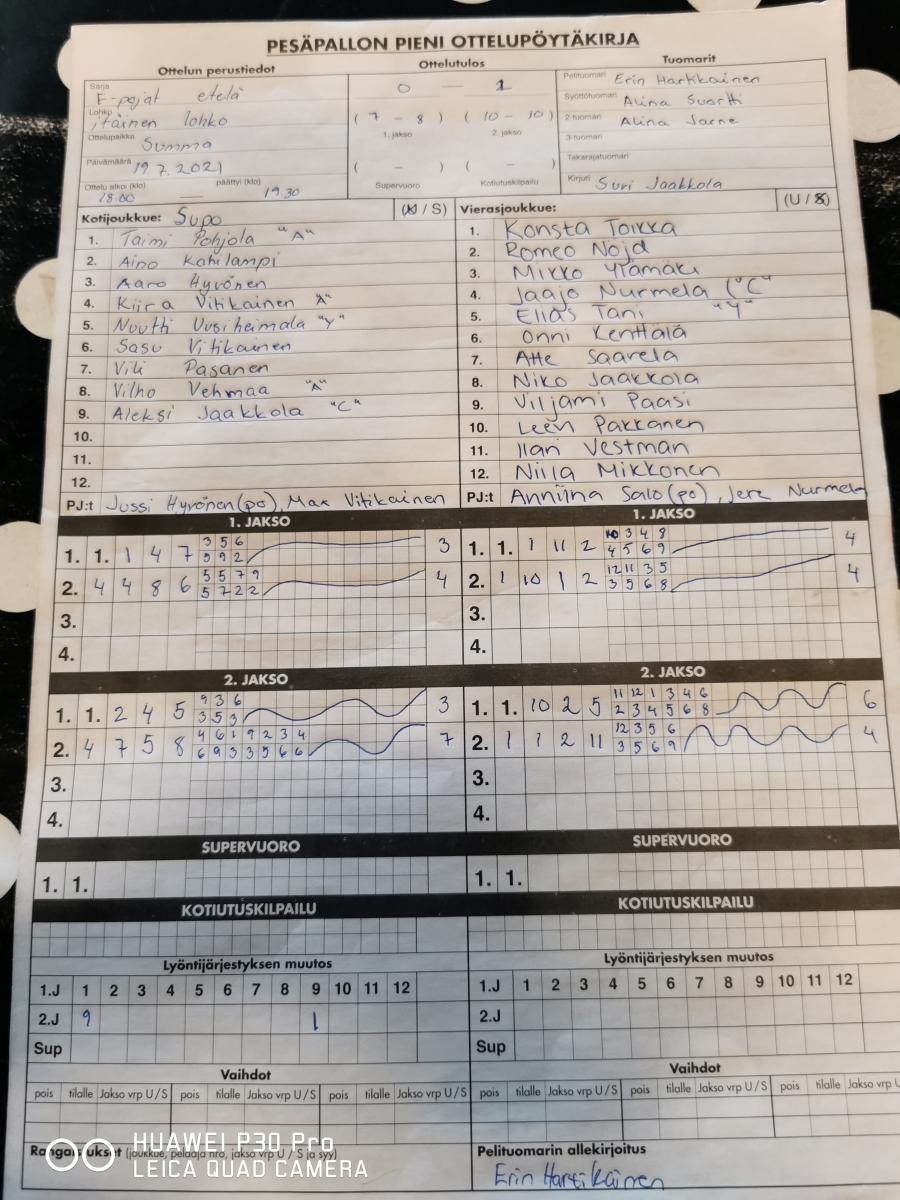 PESÄPALLON PIENI OTTELUPÖYTÄKIRJA
Ottelun perustiedot
Ottelutulos
Tuomarit
Sarja
F-pojat etelä
Lohko
itäinen lohko
Ottelupaikka
Summa
Päivämäärä
19.7.2021
Ottelu alkoi (klo) päättyi (klo)
18.00 — 19.30
0 — 1
( 7 - 8 ) ( 10 - 10 )
1. jakso 2. jakso
( - ) ( - )
Supervuoro Kotiutuskilpailu
Pelituomari Erin Hartikainen
Syöttötuomari Alina Suortti
2-tuomari Alina
3-tuomari
Takarajatuomari
Kirjuri Suri Jaakkola
Kotijoukkue: Supo (U / S)
1. Taimi Pohjola "A"
2. Aino Kohilampi
3. Aaro Hyvönen
4. Kiira Vitikainen "A"
5. Nuutti Uusiheimala "Y"
6. Sasu Vitikainen
7. Vili Pasanen
8. Vilho Vehmaa "A"
9. Aleksi Jaakkola "C"
10.
11.
12.
PJ:t Jussi Hyvönen (po), Max Vitikainen
Vierasjoukkue: (U / S)
1. Konsta Toikka
2. Romeo Nöjd
3. Mikko Ylämäki
4. Jaajo Nurmela ("C"
5. Elias Tani "Y"
6. Onni Kenttälä
7. Atte Saarela
8. Niko Jaakkola
9. Viljami Paasi
10. Leevi Pakkanen
11. Ilari Vestman
12. Niila Mikkonen
PJ:t Anniina Salo (po), Jere Nurmela
1. JAKSO
1. 1. 1 4 7 3 5 6 3
5 9 2
2. 4 4 8 6 5 5 7 9 4
5 7 2 2
3.
4.
1. JAKSO
1. 1. 1 11 2 10 3 4 8 4
4 5 6 9
2. 1 10 1 2 12 11 3 5 4
3 5 6 8
3.
4.
2. JAKSO
1. 1. 2 4 5 9 3 6 3
3 5 3
2. 4 7 5 8 4 6 1 9 2 3 4 7
6 9 3 3 5 6 6
3.
4.
2. JAKSO
1. 1. 10 2 5 11 12 1 3 4 6 6
2 3 4 5 6 8
2. 1 1 2 11 12 3 5 6 4
3 5 6 9
3.
4.
SUPERVUORO
1. 1.
SUPERVUORO
1. 1.
KOTIUTUSKILPAILU
KOTIUTUSKILPAILU
Lyöntijärjestyksen muutos
1.J 1 2 3 4 5 6 7 8 9 10 11 12
2.J 9 1
Sup
Lyöntijärjestyksen muutos
1.J 1 2 3 4 5 6 7 8 9 10 11 12
2.J
Sup
Vaihdot
pois tilalle Jakso vrp U/S pois tilalle Jakso vrp U/S pois tilalle Jakso vrp U/S
Vaihdot
pois tilalle Jakso vrp U/S pois tilalle Jakso vrp U/S pois tilalle Jakso vrp U
Rangaistukset (joukkue, pelaaja nro, jakso vrp U / S ja syy)
Pelituomarin allekirjoitus
Erin Hartikainen
HUAWEI P30 Pro
LEICA QUAD CAMERA